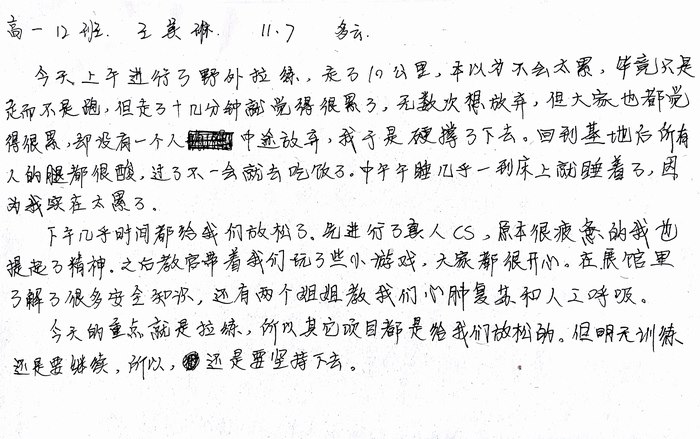 高一12班. 王昊琳. 11.7 多云.
今天上午进行了野外拉练，走了10公里，本以为不会太累，毕竟只是
走而不是跑，但走了十几分钟就觉得很累了，无数次想放弃，但大家也都觉
得很累，却没有一个人中途放弃，我于是硬撑了下去。回到基地后所有
人的腿都很酸，过了不一会就去吃饭了。中午午睡几乎一到床上就睡着了，因
为我实在太累了。
下午几乎时间都给我们放松了。先进行了真人CS，原本很疲惫的我也
提起了精神。之后教官带着我们玩了些小游戏，大家都很开心。在展馆里
了解了很多安全知识，还有两个姐姐教我们心肺复苏和人工呼吸。
今天的重点就是拉练，所以其它项目都是给我们放松的。但明天训练
还是要继续，所以，还是要坚持下去。